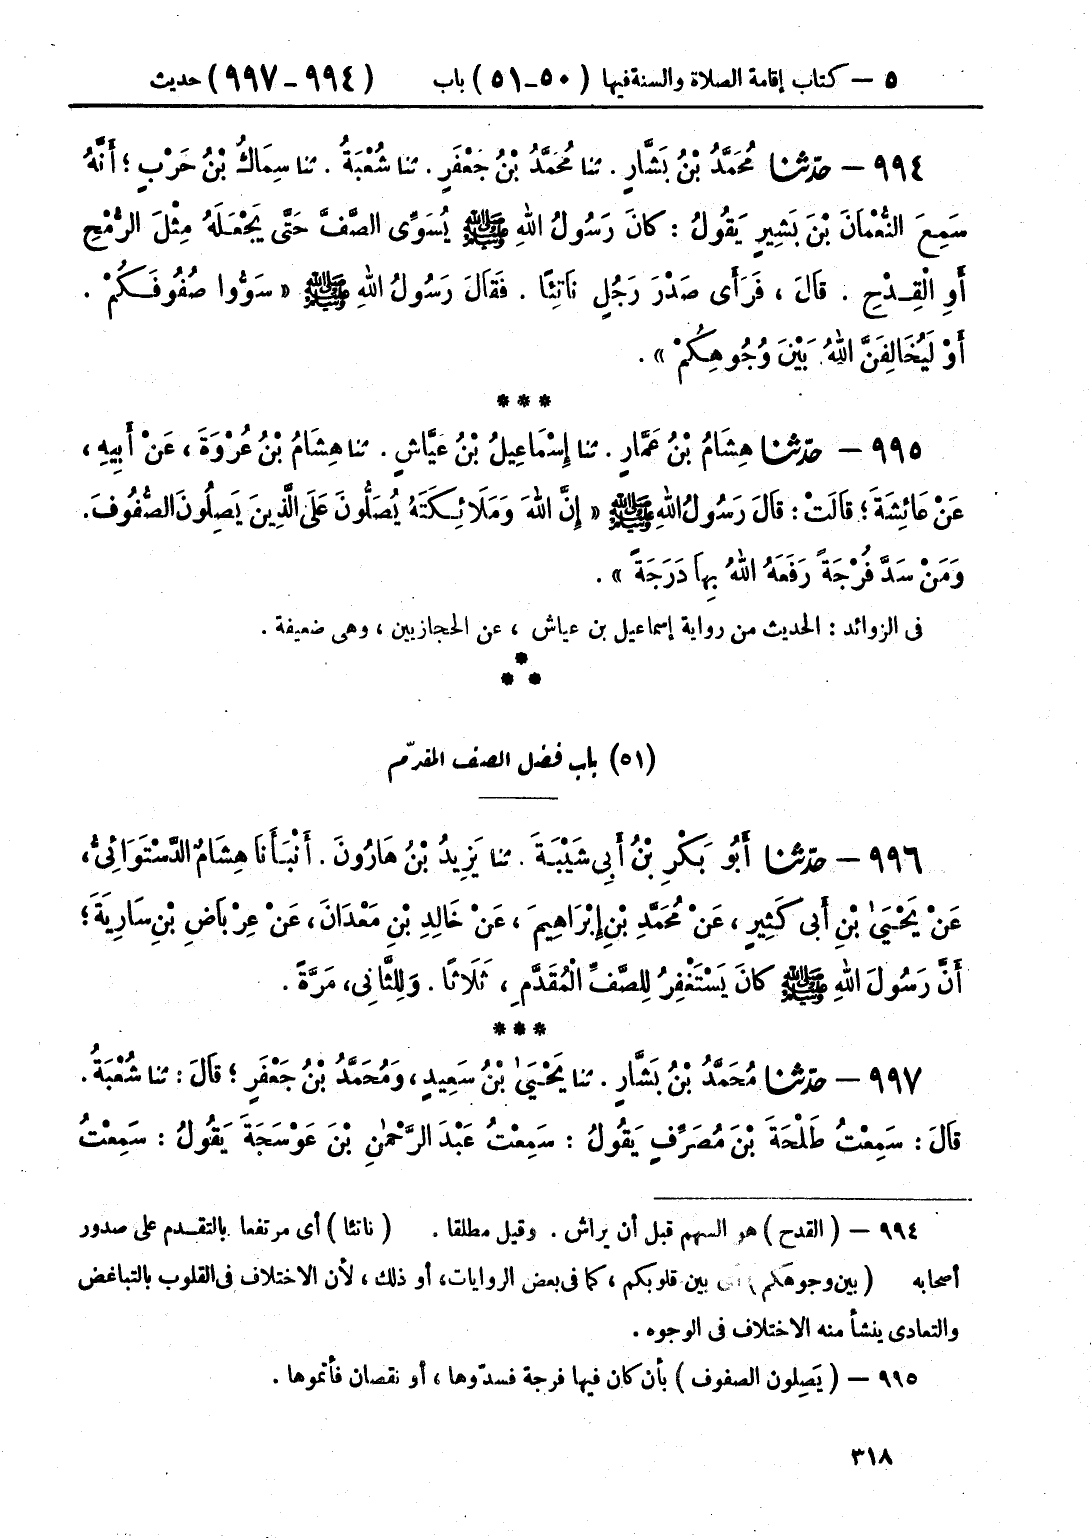 ٥ – كتاب إقامة الصلاة والسنة فيها (٥٠-٥١) باب (٩٩٤-٩٩٧) حديث
٩٩٤ – حدّثنا مُحَمَّدُ بْنُ بَشَّارٍ . ثنا مُحَمَّدُ بْنُ جَعْفَرٍ . ثنا شُعْبَةُ . ثنا سِمَاكُ بْنُ حَرْبٍ ؛ أَنَّهُ
سَمِعَ النُّعْمَانَ بْنَ بَشِيرٍ يَقُولُ : كَانَ رَسُولُ اللهِ ﷺ يُسَوِّى الصَّفَّ حَتَّى يَجْعَلَهُ مِثْلَ الرُّمْحِ
أَوِ الْقِدْحِ . قَالَ ، فَرَأَى صَدْرَ رَجُلٍ نَاتِئًا . فَقَالَ رَسُولُ اللهِ ﷺ « سَوُّوا صُفُوفَكُمْ .
أَوْ لَيُخَالِفَنَّ اللهُ بَيْنَ وُجُوهِكُمْ » .
***
٩٩٥ – حدّثنا هِشَامُ بْنُ عَمَّارٍ . ثنا إِسْمَاعِيلُ بْنُ عَيَّاشٍ . ثنا هِشَامُ بْنُ عُرْوَةَ ، عَنْ أَبِيهِ ،
عَنْ عَائِشَةَ ؛ قَالَتْ : قَالَ رَسُولُ اللهِ ﷺ « إِنَّ اللهَ وَمَلَائِكَتَهُ يُصَلُّونَ عَلَى الَّذِينَ يَصِلُونَ الصُّفُوفَ .
وَمَنْ سَدَّ فُرْجَةً رَفَعَهُ اللهُ بِهَا دَرَجَةً » .
فى الزوائد : الحديث من رواية إسماعيل بن عياش ، عن الحجازيين ، وهى ضعيفة .
*
* *
(٥١) باب فضل الصف المقدّم
٩٩٦ – حدّثنا أَبُو بَكْرِ بْنُ أَبِى شَيْبَةَ . ثنا يَزِيدُ بْنُ هَارُونَ . أَنْبَأَنَا هِشَامٌ الدَّسْتَوَائِىُّ ،
عَنْ يَحْيَىٰ بْنِ أَبِى كَثِيرٍ ، عَنْ مُحَمَّدِ بْنِ إِبْرَاهِيمَ ، عَنْ خَالِدِ بْنِ مَعْدَانَ ، عَنْ عِرْبَاضِ بْنِ سَارِيَةَ ؛
أَنَّ رَسُولَ اللهِ ﷺ كَانَ يَسْتَغْفِرُ لِلصَّفِّ الْمُقَدَّمِ ، ثَلَاثًا . وَلِلثَّانِى ، مَرَّةً .
***
٩٩٧ – حدّثنا مُحَمَّدُ بْنُ بَشَّارٍ . ثنا يَحْيَىٰ بْنُ سَعِيدٍ ، وَمُحَمَّدُ بْنُ جَعْفَرٍ ؛ قَالَ : ثنا شُعْبَةُ .
قَالَ : سَمِعْتُ طَلْحَةَ بْنَ مُصَرِّفٍ يَقُولُ : سَمِعْتُ عَبْدَ الرَّحْمٰنِ بْنَ عَوْسَجَةَ يَقُولُ : سَمِعْتُ
٩٩٤ – ( القدح ) هو السهم قبل أن يراش . وقيل مطلقا . ( ناتئا ) أى مرتفعا بالتقدم على صدور
أصحابه ( بين وجوهكم ) أى بين قلوبكم ، كما فى بعض الروايات ، أو ذلك ، لأن الاختلاف فى القلوب بالتباغض
والتعادى ينشأ منه الاختلاف فى الوجوه .
٩٩٥ – ( يَصِلون الصفوف ) بأن كان فيها فرجة فسدّوها ، أو نقصان فأتموها .
٣١٨